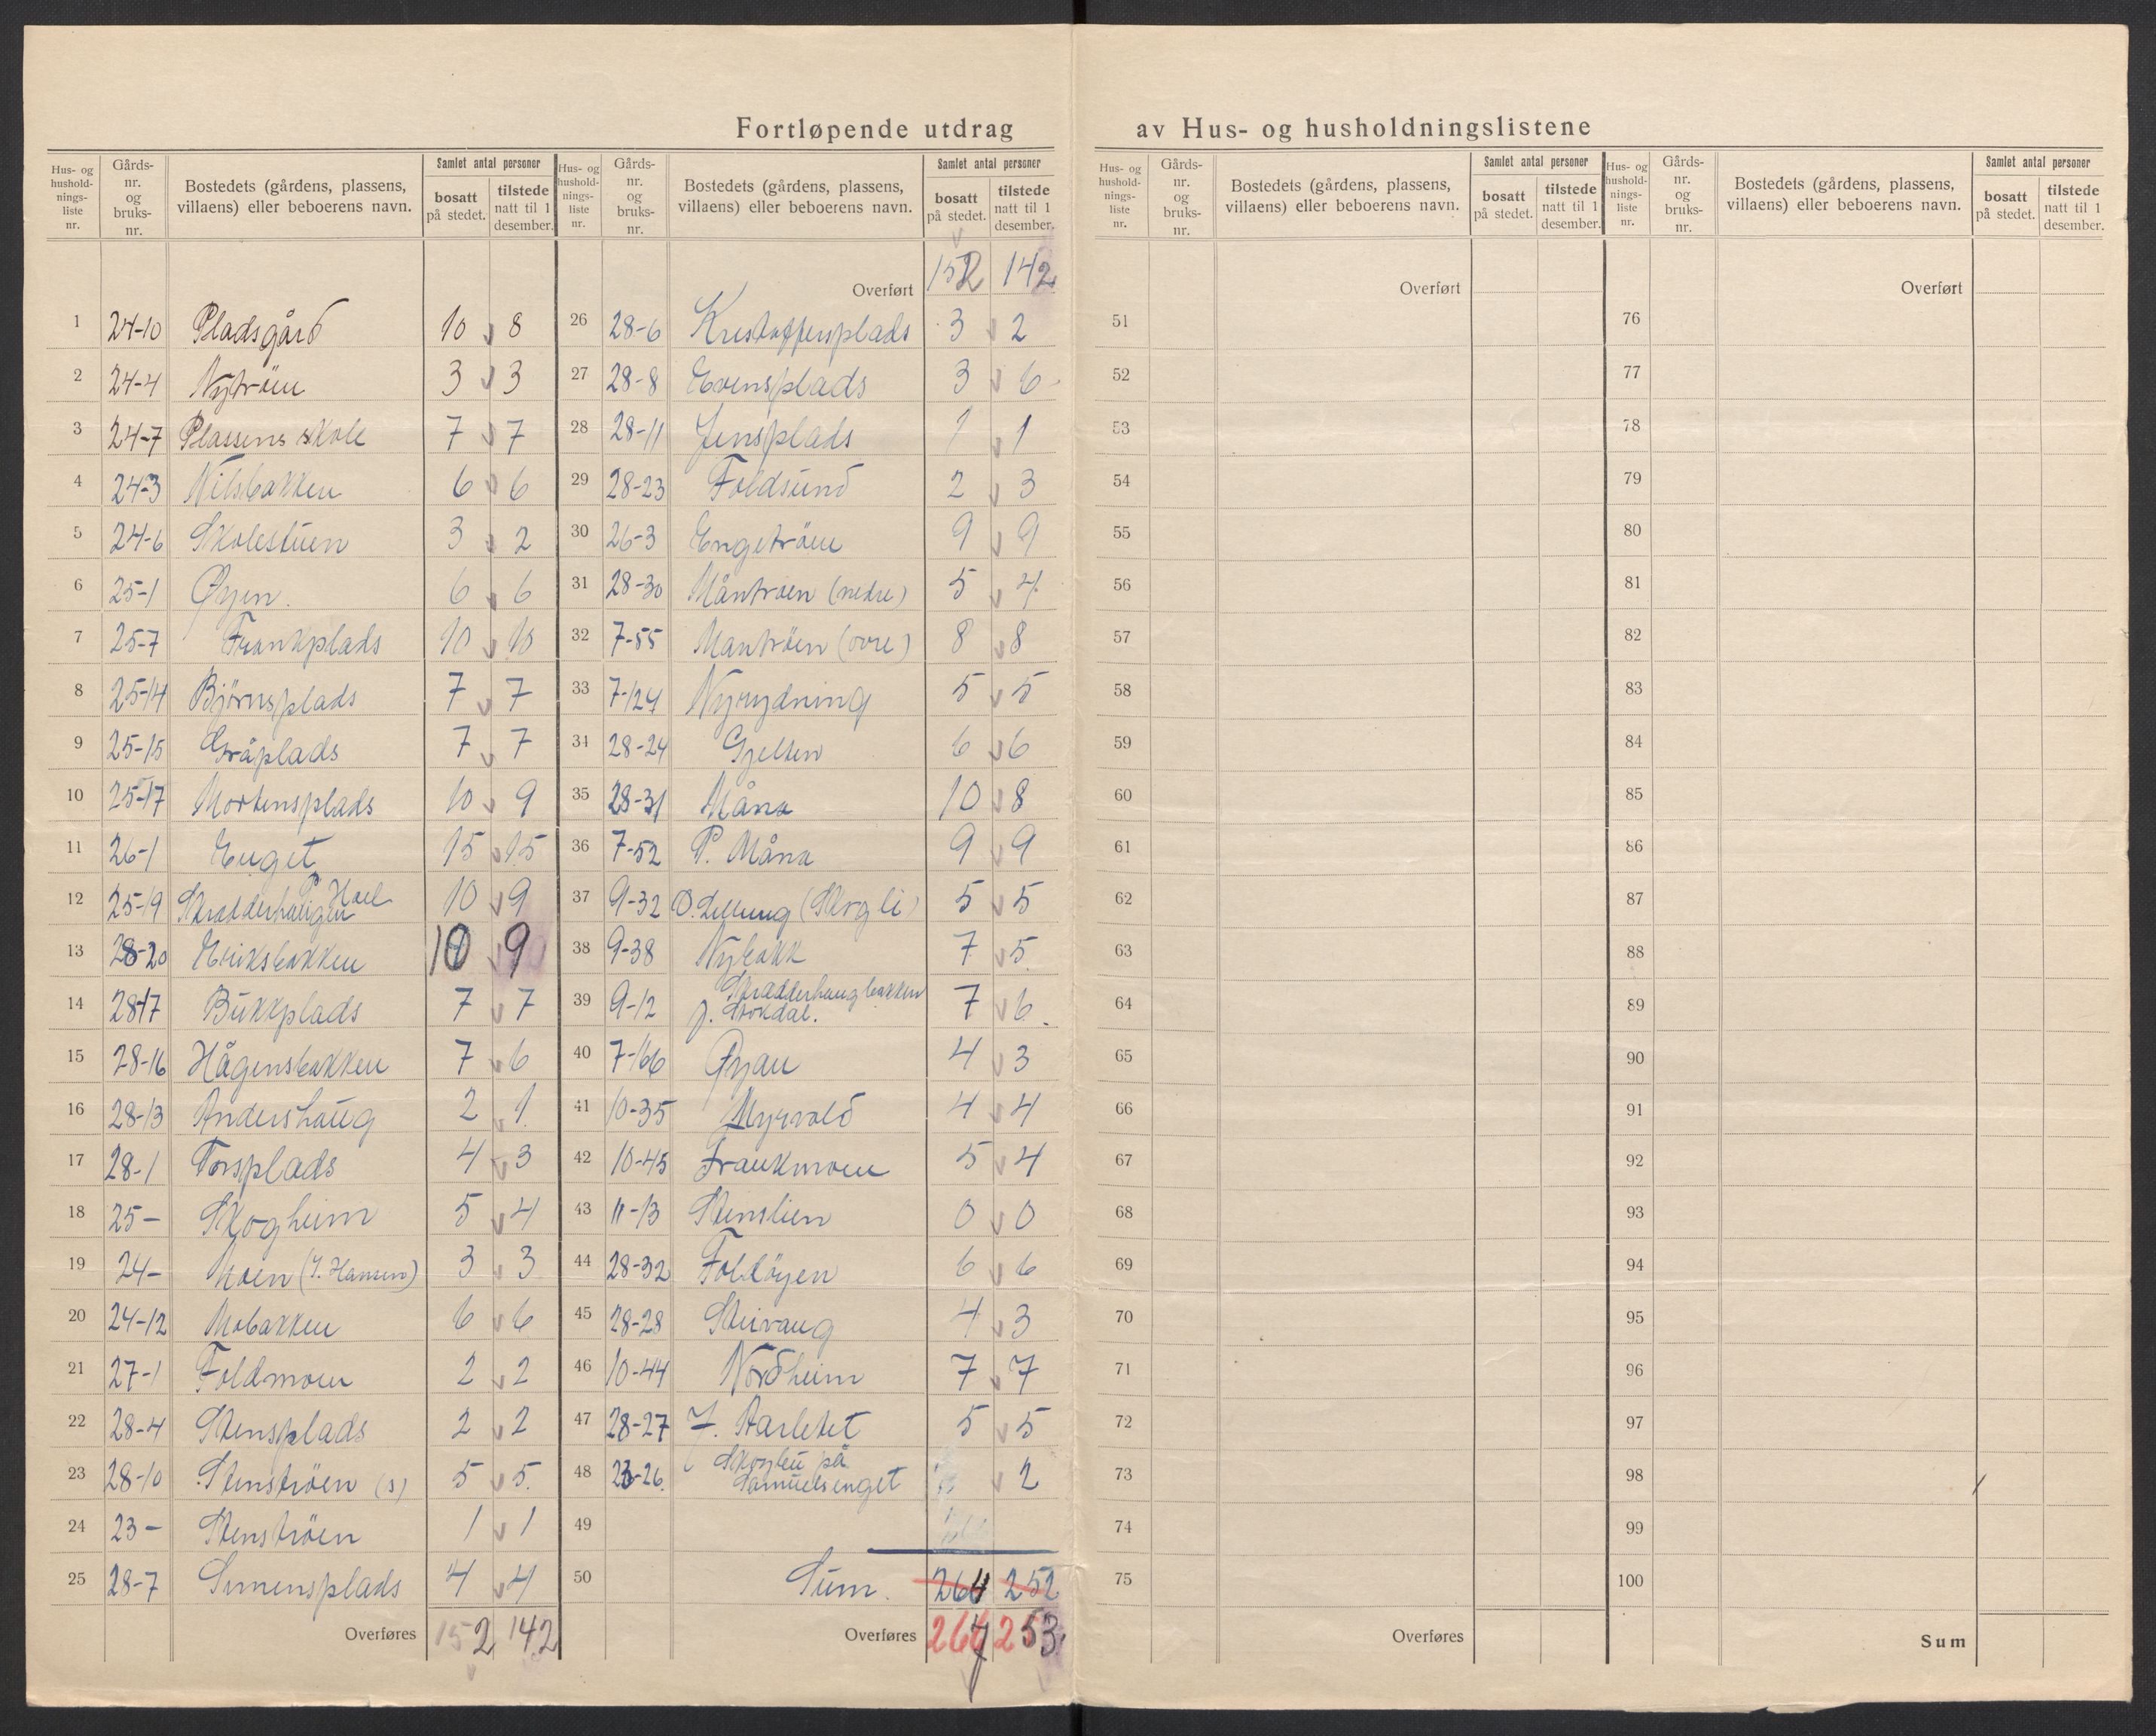 Fortløpende utdrag av Hus- og husholdningslistene
Hus- og husholdnings- liste nr. | Gårds- nr. og bruks- nr. | Bostedets (gårdens, plassens, villaens) eller beboerens navn. | Samlet antal personer | bosatt på stedet. | tilstede natt til 1 desember.
1 24-10 Pladsgård 10 8
2 24-4 Nytrøen 3 3
3 24-7 Plassens skole 7 7
4 24-3 Nilsbakken 6 6
5 24-6 Skolestuen 3 2
6 25-1 Øyen. 6 6
7 25-7 Frankplads 10 10
8 25-14 Bjørnsplads 7 7
9 25-15 Gråplads 7 7
10 25-17 Mortensplads 10 9
11 26-1 Enget 15 15
12 25-19 Skradderhaugen P. Hoel 10 9
13 28-20 Eriksbakken 10 9
14 28-17 Bukkplads 7 7
15 28-16 Hågensbakken 7 6
16 28-13 Andershaug 2 1
17 28-1 Torsplads 4 3
18 25- Skogheim 5 4
19 24- Moen (J. Hansen) 3 3
20 24-12 Mobakken 6 6
21 27-1 Foldmoen 2 2
22 28-4 Stensplads 2 2
23 28-10 Stenstrøen (s) 5 5
24 23- Stenstrøen 1 1
25 28-7 Simensplads 4 4
Overføres 152 142
Hus- og husholdnings- liste nr. | Gårds- nr. og bruks- nr. | Bostedets (gårdens, plassens, villaens) eller beboerens navn. | Samlet antal personer | bosatt på stedet. | tilstede natt til 1 desember.
Overført 152 142
26 28-6 Kristoffersplads 3 2
27 28-8 Evensplads 3 6
28 28-11 Jensplads 1 1
29 28-23 Foldsund 2 3
30 26-3 Engetrøen 9 9
31 28-30 Måntrøen (nedre) 5 4
32 7-55 Mantrøen (øvre) 8 8
33 7-124 Nyrydning 5 5
34 28-24 Gjelten 6 6
35 28-31 Måna 10 8
36 7-52 P. Måna 9 9
37 9-32 (Skogli) 5 5
38 9-38 Nybakk 7 5
39 9-12 Skradderhaugbakken J. Stokdal. 7 6
40 7-166 Øyan 4 3
41 10-35 Myrvold 4 4
42 10-45 Frankmoen 5 4
43 11-13 Stenslien 0 0
44 28-32 Foldøyen 6 6
45 28-28 4 3
46 10-44 Nordheim 7 7
47 28-27 J. 5 5
48 -26 på Samuelsenget 2
49
50 Sum. 264 252
Overføres 267 253
Hus- og husholdnings- liste nr. | Gårds- nr. og bruks- nr. | Bostedets (gårdens, plassens, villaens) eller beboerens navn. | Samlet antal personer | bosatt på stedet. | tilstede natt til 1 desember.
Overført
51
52
53
54
55
56
57
58
59
60
61
62
63
64
65
66
67
68
69
70
71
72
73
74
75
Overføres
Hus- og husholdnings- liste nr. | Gårds- nr. og bruks- nr. | Bostedets (gårdens, plassens, villaens) eller beboerens navn. | Samlet antal personer | bosatt på stedet. | tilstede natt til 1 desember.
Overført
76
77
78
79
80
81
82
83
84
85
86
87
88
89
90
91
92
93
94
95
96
97
98
99
100
Sum